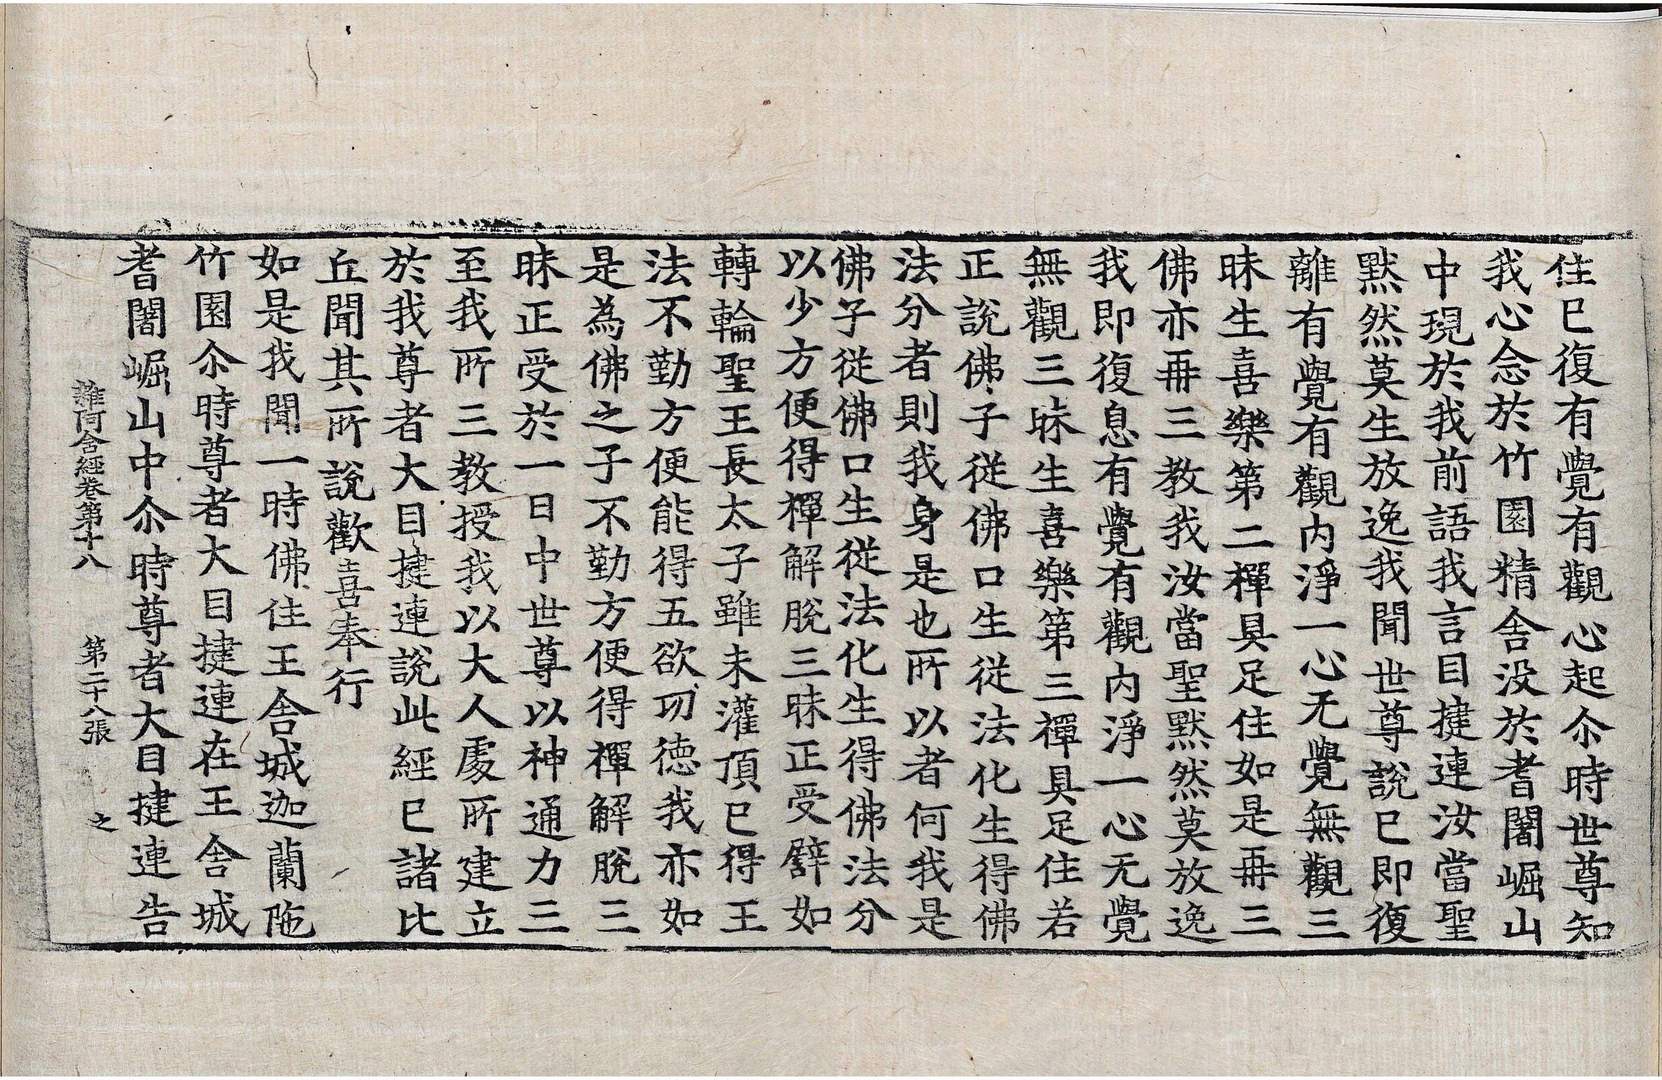 住已復有覺有觀心起尒時世尊知
我心念於竹園精舍没於耆闍崛山
中現於我前語我言目揵連汝當聖
黙然莫生放逸我聞世尊說已即復
離有覺有觀內淨一心无覺無觀三
昧生喜樂第二禪具足住如是再三
佛亦再三教我汝當聖黙然莫放逸
我即復息有覺有觀內淨一心无覺
無觀三昧生喜樂第三禪具足住若
正說佛子從佛口生從法化生得佛
法分者則我身是也所以者何我是
佛子從佛口生從法化生得佛法分
以少方便得禪解脫三昧正受譬如
轉輪聖王長太子雖未灌頂已得王
法不勤方便能得五欲功德我亦如
是為佛之子不勤方便得禪解脫三
昧正受於一日中世尊以神通力三
至我所三教授我以大人處所建立
於我尊者大目揵連說此經已諸比
丘聞其所說歡喜奉行
如是我聞一時佛住王舍城迦蘭陁
竹園尒時尊者大目揵連在王舍城
耆闍崛山中尒時尊者大目揵連告
雜阿含經卷第十八 第二十八張 之